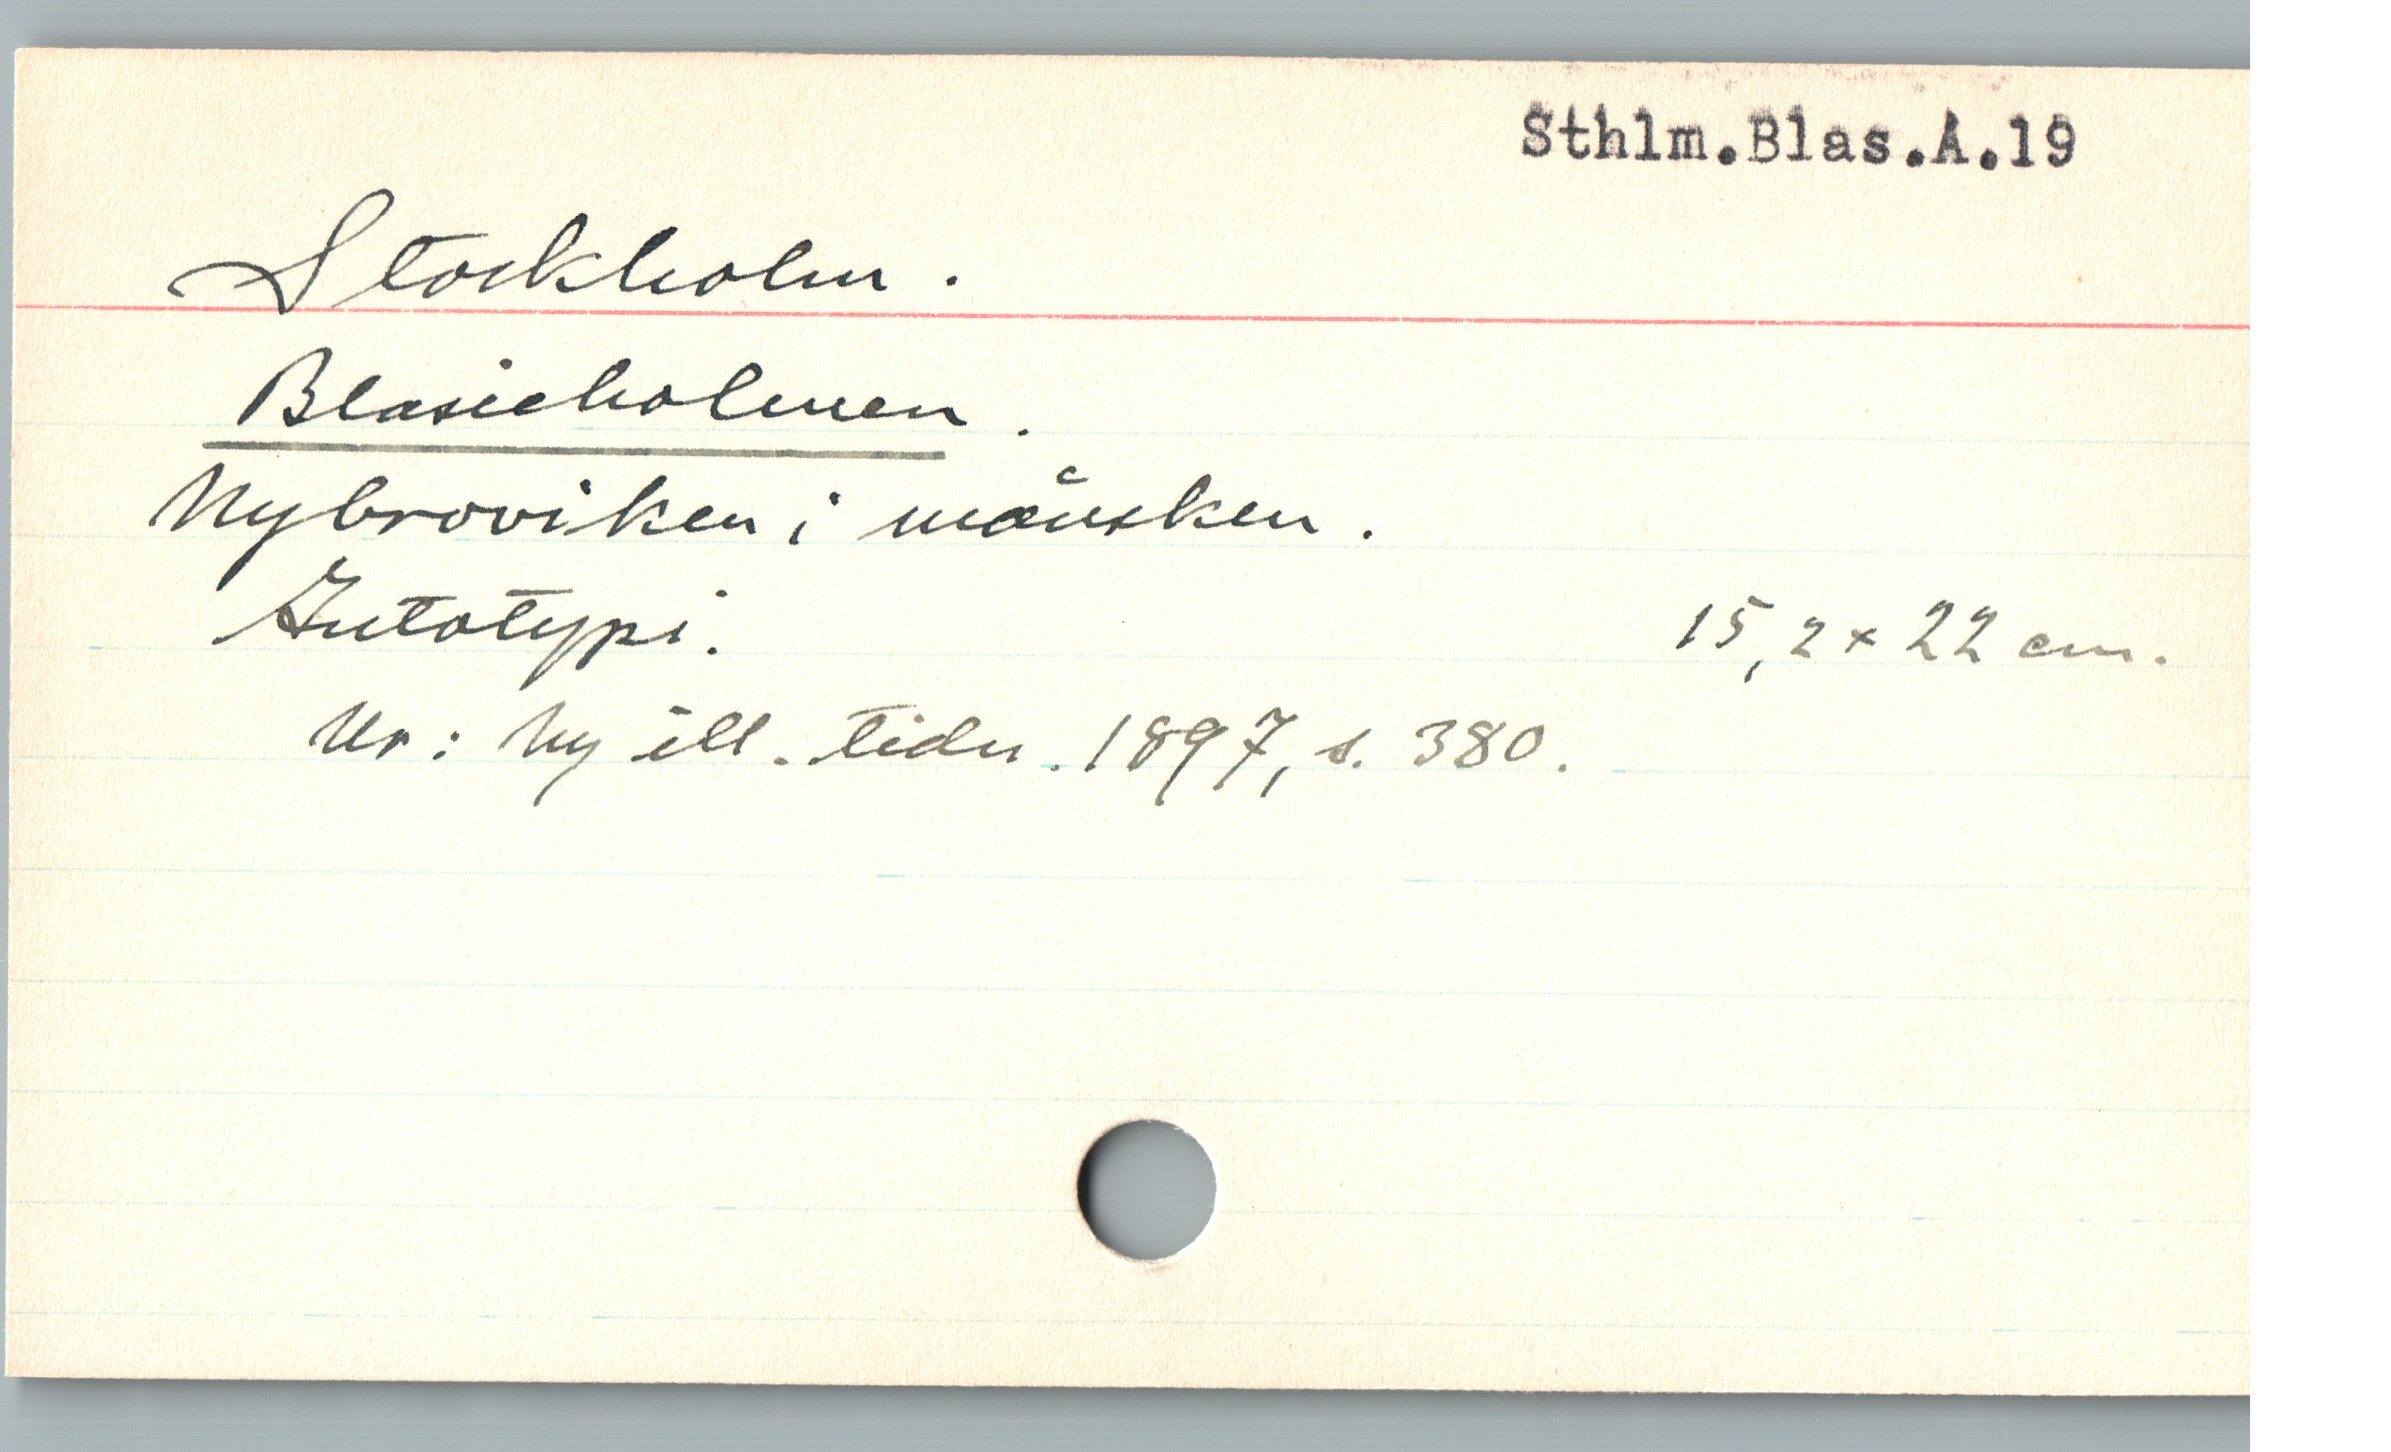 Sthlm.Blas.A.19
Stockholm.
Blasieholmen.
Nybroviken i månsken.
Autotypi. 15,2 x 22 cm.
Ur: Ny ill. tidn. 1897, s. 380.